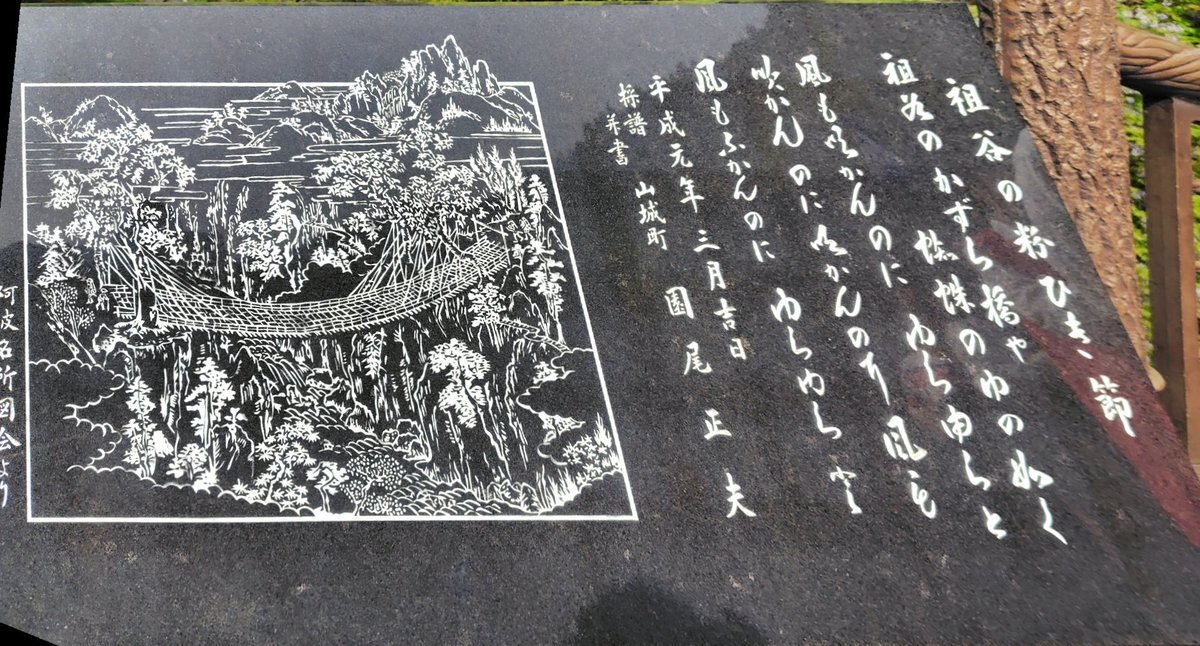 祖谷の粉ひき節
祖谷のかずら橋ゃ蜘蛛のゆの如く
風も吹かんのに ゆら由らと
吹かんのに吹かんのに 風も
風もふかんのに ゆらゆらと
平成元年三月吉日
採譜并書 山城町 園尾正夫
阿波名所図会より